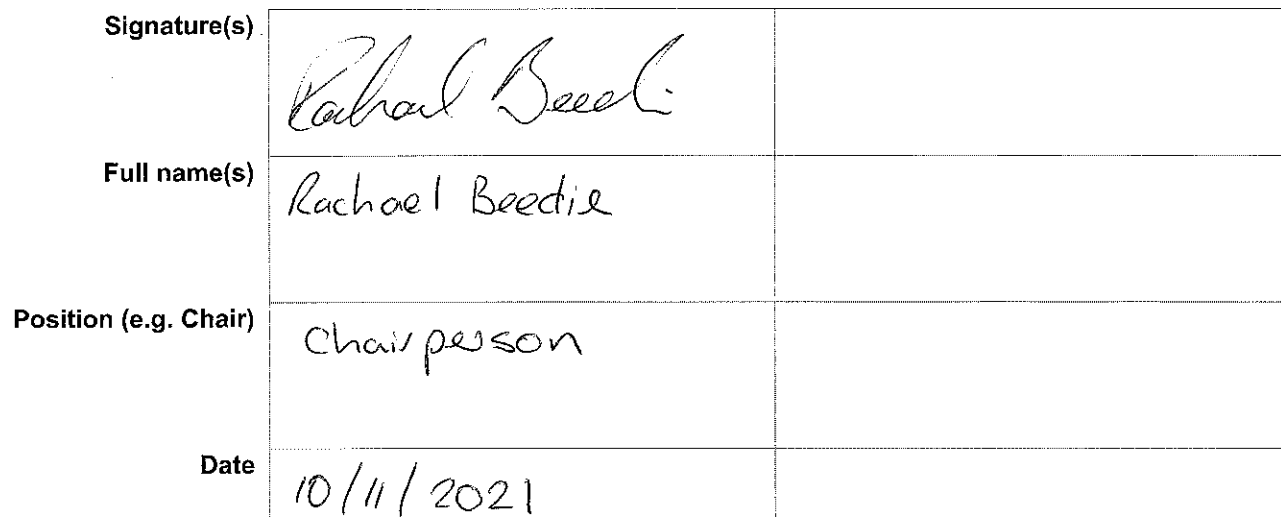 Signature(s)
Rachael Beedie
Full name(s)
Rachael Beedie
Position (e.g. Chair)
Chairperson
Date
10/11/2021